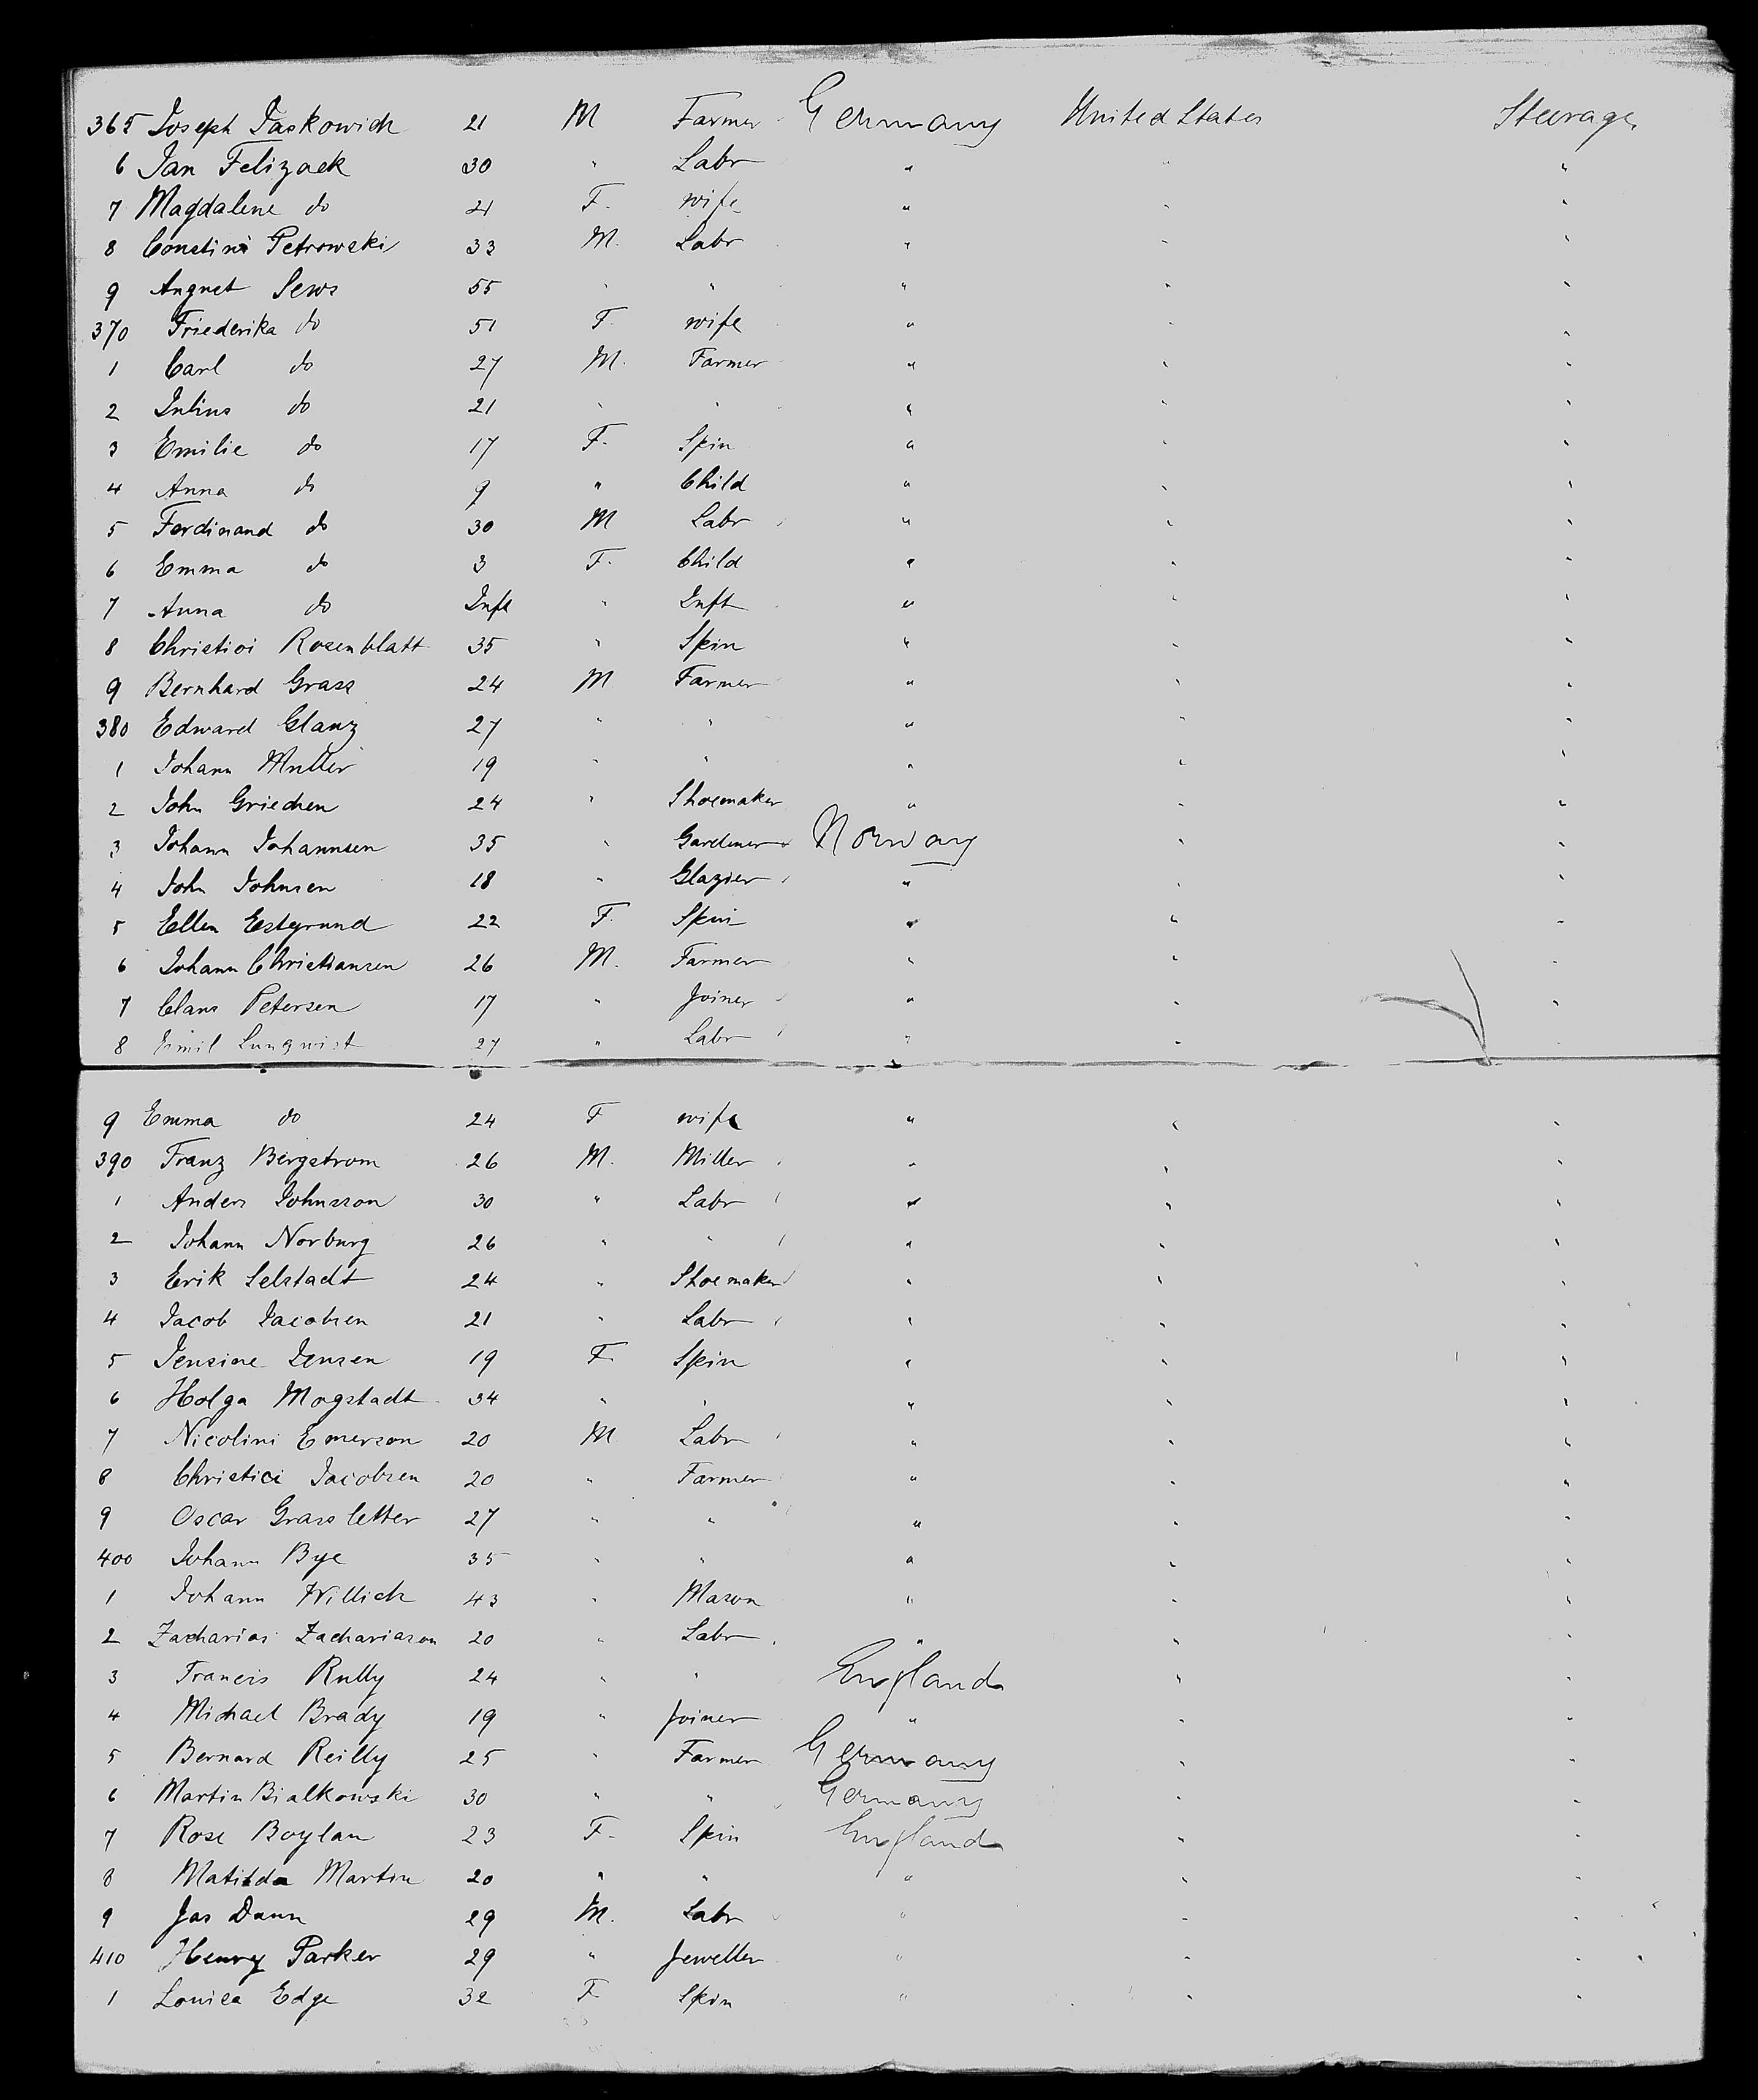 365 Joseph Jaskowich 21 M Farmer Germany United States Steerage
6 Jan Felizack 30 " Labr " " "
7 Magdalene do 21 F. wife " " "
8 Constini Petrowski 33 M. Labr " " "
9 August Sews 55 " " " " "
370 Friederika do 51 F. wife " " "
1 Carl do 27 M. Farmer " " "
2 Julius do 21 " " " " "
3 Emilie do 17 F. Spin " " "
4 Anna do 9 " Child " " "
5 Ferdinand do 30 M Labr " " "
6 Emma do 3 F. Child " " "
7 Anna do Inft " Inft " " "
8 Christioi Rosenblatt 35 " Spin " " "
9 Bernhard Grass 24 M Farmer " " "
380 Edward Glanz 27 " " " " "
1 Johann Muller 19 " " " " "
2 John Griechen 24 " Shoemaker " " "
3 Johann Johannsen 35 " Gardener Norway " "
4 John Johnsen 18 " Glazier " " "
5 Ellen Estgrund 22 F. Spin " " "
6 Johann Christiansen 26 M. Farmer " " "
7 Claus Petersen 17 " Joiner " " "
8 Emil Lunqwist 27 " Labr " " "
9 Emma do 24 F wife " " "
390 Franz Bergstrom 26 M. Miller " " "
1 Anders Johnsson 30 " Labr " " "
2 Johann Norburg 26 " " " " "
3 Erik Selstadt 24 " Shoemaker " " "
4 Jacob Jacobsen 21 " Labr " " "
5 Jensine Jensen 19 F. Spin " " "
6 Holga Mogstadt 34 " " " " "
7 Nicolini Emerson 20 M Labr " " "
8 Christici Jacobsen 20 " Farmer " " "
9 Oscar Grassletter 27 " " " " "
400 Johann Bye 35 " " " " "
1 Johann Willich 43 " Mason " " "
2 Zacharias Zachariason 20 " Labr " " "
3 Francis Rully 24 " " England " "
4 Michael Brady 19 " Joiner " " "
5 Bernard Reilly 25 " Farmer Germany " "
6 Martin Bialkowski 30 " " Germany " "
7 Rose Boylan 23 F. Spin England " "
8 Matilda Martin 20 " " " " "
9 Jas Dunn 29 M. Labr " " "
410 Henry Parker 29 " Jeweller " " "
1 Louisa Edge 32 F Spin " " "